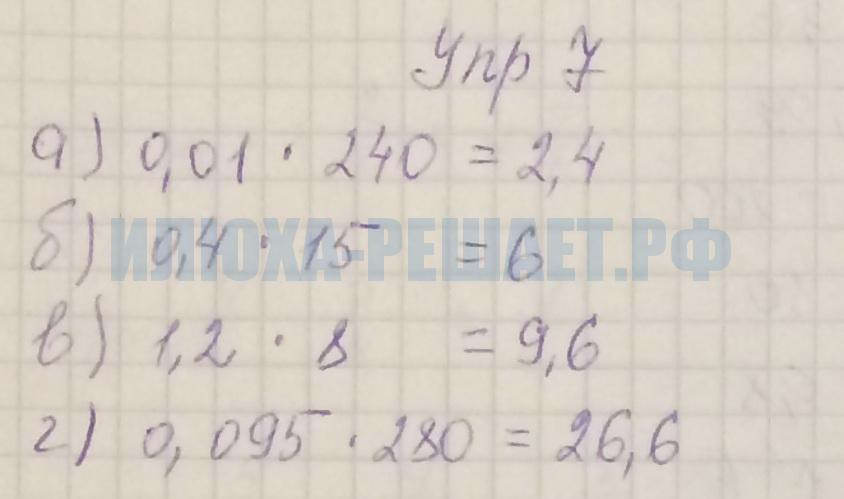 Упр 7
а) 0,01 · 240 = 2,4
б) 0,4 · 15 = 6
ИЛЮХА-РЕШАЕТ.РФ
в) 1,2 · 8 = 9,6
г) 0,095 · 280 = 26,6